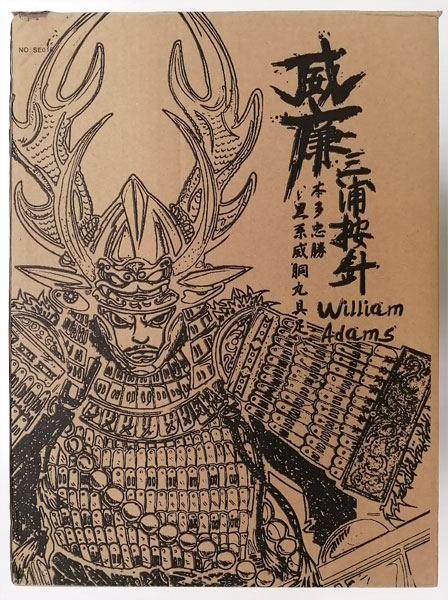 NO SE01
威廉
三浦按針
本多忠勝
黒糸威胴丸具足
William
Adams